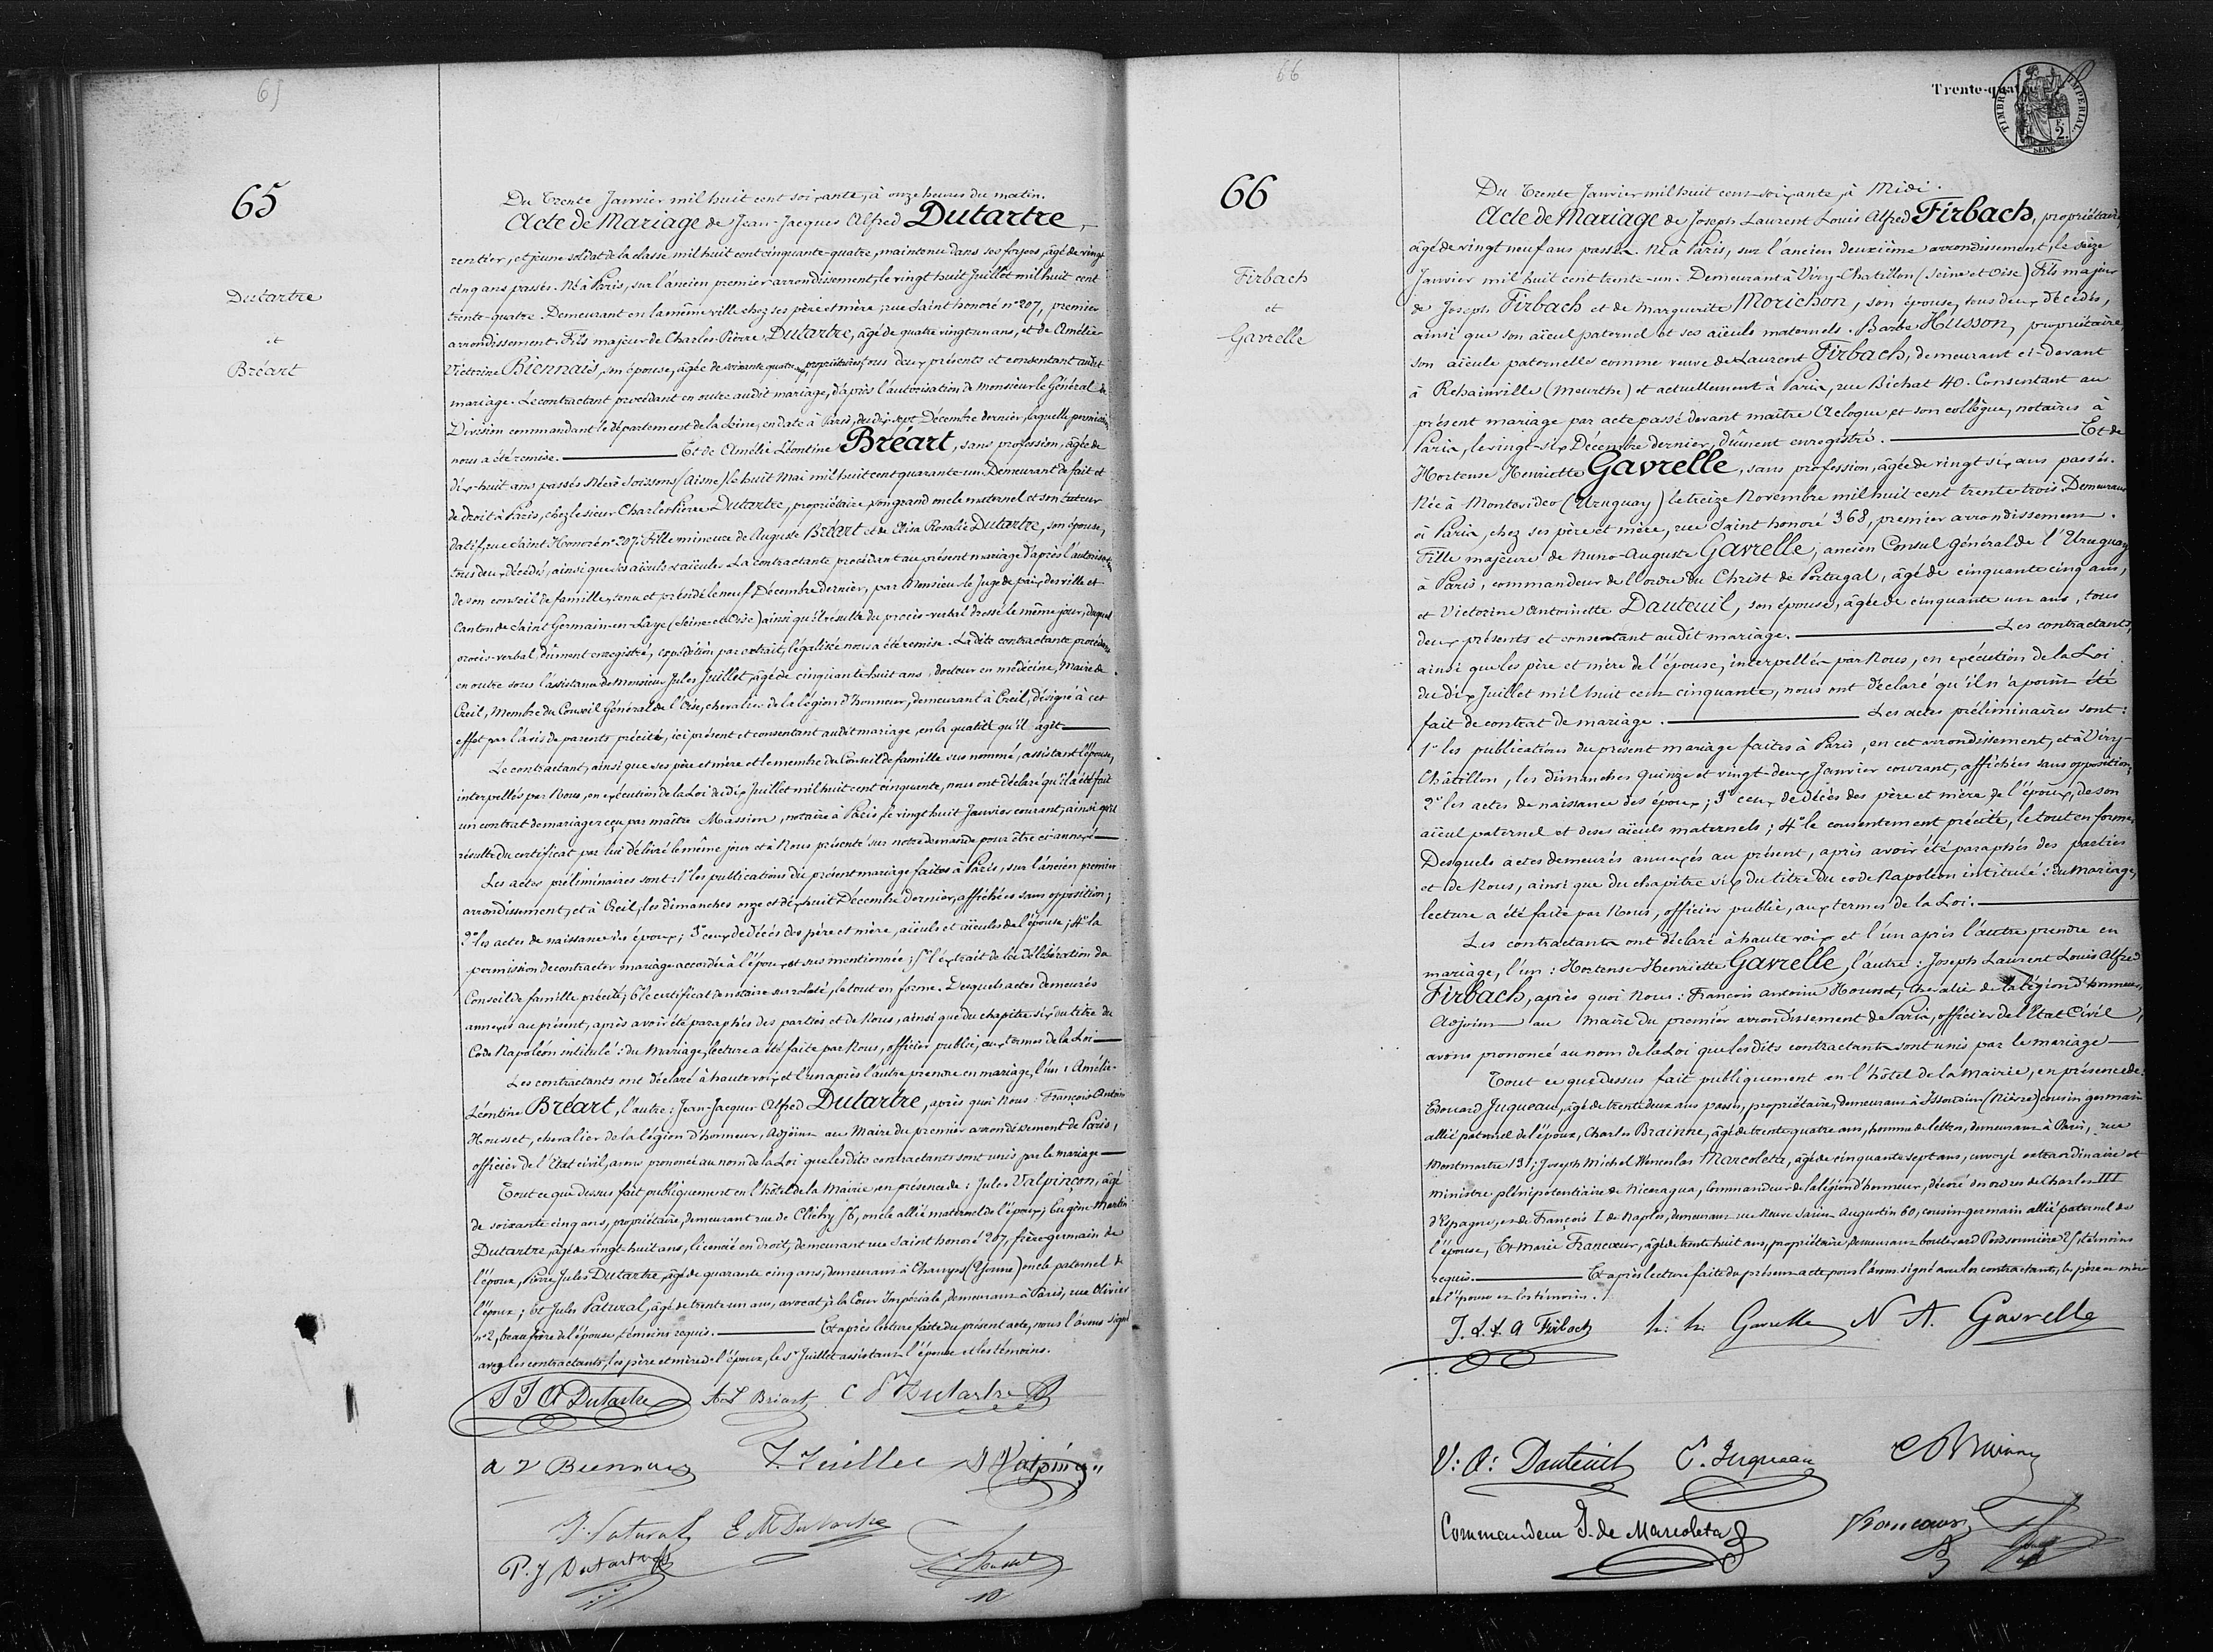 65
65
Dutartre
et
Bréart
Du trente Janvier mil huit cent soixante, à onze heures du matin.
Acte de Mariage de Jean-Jacques Alfred Dutartre,
rentier, et jeune soldat de la classe mil huit cent cinquante-quatre, maintenu dans ses foyers, âgé de vingt
cinq ans passés. Né à Paris, sur l'ancien premier arrondissement, le vingt huit Juillet mil huit cent
trente-quatre. Demeurant en la même ville chez ses père et mère, rue Saint honoré n° 207, premier
arrondissement. Fils majeur de Charles-Pierre Dutartre, âgé de quatre vingt un ans, et de Amélie
Victorine Biennais, son épouse, âgée de soixante quatre ans, propriétaires, tous deux présents et consentant audit
mariage. Le contractant procédant en outre audit mariage, d'après l'autorisation de Monsieur le Général de
Division commandant le département de la Seine, en date à Paris, du dix-sept Décembre dernier, laquelle permission
nous a été remise. Et de Amélie Léontine Bréart, sans profession, âgée de
dix-huit ans passés. Née à Soissons (Aisne) le huit Mai mil huit cent quarante-un. Demeurant de fait et
de droit à Paris, chez le sieur Charles Pierre Dutartre, propriétaire, son grand oncle maternel et son tuteur
datif, rue Saint-Honoré n° 207. Fille mineure de Auguste Bréart et de Elisa Rosalie Dutartre, son épouse,
tous deux décédés, ainsi que ses aïeuls et aïeules. La contractante procédant au présent mariage d'après l'autorisation
de son conseil de famille, tenu et présidé le neuf Décembre dernier, par Monsieur le Juge de paix des ville et
Canton de Saint Germain-en-Laye (Seine-et-Oise) ainsi qu'il résulte du procès-verbal dressé le même jour, duquel
procès-verbal dûment enregistré, expédition par extrait, légalisée nous a été remise. Ladite contractante procédant
en outre sous l'assistance de Monsieur Jules Juillet, âgé de cinquante huit ans, docteur en médecine, Maire de
Creil, Membre du Conseil Général de l'Oise, chevalier de la légion d'honneur, demeurant à Creil, désigné à cet
effet par l'avis de parents précité, ici présent et consentant audit mariage, en la qualité qu'il agit
Le contractant, ainsi que ses père et mère et le membre du Conseil de famille sus nommé, assistant l'épouse,
interpellés par Nous, en exécution de la Loi du dix Juillet mil huit cent cinquante, nous ont déclaré qu'il a été fait
un contrat de mariage reçu par maître Massion, notaire à Paris, le vingt huit Janvier courant, ainsi qu'il
résulte du certificat par lui délivré le même jour et à Nous présenté sur notre demande pour être ci-annexé
Les actes préliminaires sont: 1° les publications du présent mariage faites à Paris, sur l'ancien premier
arrondissement, et à Creil, les dimanches onze et dix huit Décembre dernier, affichées sans opposition;
2° les actes de naissance des époux; 3° ceux de décès des père et mère, aïeuls et aïeules de l'épouse; 4° la
permission de contracter mariage accordée à l'époux et sus mentionnée; 5° l'extrait de la délibération du
Conseil de famille précité; 6° le certificat de notaire sus relaté, le tout en forme. Desquels actes demeurés
annexés au présent, après avoir été paraphés des parties et de Nous, ainsi que du chapitre six du titre du
Code Napoléon intitulé: du Mariage, lecture a été faite par Nous, officier public, aux termes de la Loi
Les contractants ont déclaré à haute voix et l'un après l'autre prendre en mariage, l'un: Amélie-
Léontine Bréart, l'autre: Jean-Jacques Alfred Dutartre, après quoi Nous: François Antoine
Housset, chevalier de la légion d'honneur, Adjoint au Maire du premier arrondissement de Paris,
officier de l'Etat civil, avons prononcé au nom de la Loi que lesdits contractants sont unis par le mariage
Tout ce que dessus fait publiquement en l'hôtel de la Mairie, en présence de: Jules Valpinçon, âgé
de soixante cinq ans, propriétaire, demeurant rue de Clichy 56, oncle allié maternel de l'époux; Eugène-Martin
Dutartre, âgé de vingt-huit ans, licencié en droit, demeurant rue Saint honoré 207, frère germain de
l'époux, Pierre Jules Dutartre, âgé de quarante cinq ans, demeurant à (Yonne) oncle paternel de
l'époux; Et Jules Patural, âgé de trente un ans, avocat à la Cour Impériale, demeurant à Paris, rue Olivier
n° 2, beau frère de l'épouse, témoins requis. Et après lecture faite du présent acte, nous l'avons signé
avec les contractants, les père et mère de l'époux, le Sr Juillet assistant l'épouse et les témoins.
J J A Dutartre A L Bréart C P Dutartre
A V Biennais J. Juillet J Valpinçon
J. Patural E M Dutartre
P. J Dutartre Housset
66
Trente-quatre
TIMBRE IMPERIAL
2
SEINE
66
Firbach
et
Gavrelle
Du trente Janvier mil huit cent soixante, à Midi.
Acte de Mariage de Joseph Laurent Louis Alfred Firbach, propriétaire,
âgé de vingt neuf ans passés. Né à Paris, sur l'ancien deuxième arrondissement, le seize
Janvier mil huit cent trente-un. Demeurant à Viry-Chatillon (Seine et Oise) Fils majeur
de Joseph Firbach et de Marguerite Morichon, son épouse, tous deux décédés,
ainsi que son aïeul paternel et ses aïeuls maternels. Barbe Husson, propriétaire,
son aïeule paternelle comme veuve de Laurent Firbach, demeurant ci-devant
à Rehainville (Meurthe) et actuellement à Paris, rue Bichat 40. Consentant au
présent mariage par acte passé devant maître Acloque et son collègue, notaires à
Paris, le vingt-six Décembre dernier, dûment enregistré. Et de
Hortense Henriette Gavrelle, sans profession, âgée de vingt six ans passés.
Née à Montevideo (Uruguay) le treize Novembre mil huit cent trente trois. Demeurant
à Paris, chez ses père et mère, rue Saint honoré 368, premier arrondissement.
Fille majeure de Nuno-Auguste Gavrelle, ancien Consul Général de l'Uruguay
à Paris, commandeur de l'ordre du Christ de Portugal, âgé de cinquante cinq ans,
et Victorine Antoinette Dauteuil, son épouse, âgée de cinquante un ans, tous
deux présents et consentant audit mariage. Les contractants,
ainsi que les père et mère de l'épouse, interpellés par Nous, en exécution de la Loi
du dix Juillet mil huit cent cinquante, nous ont déclaré qu'il n'a point été
fait de contrat de mariage. Les actes préliminaires sont:
1° les publications du présent mariage faites à Paris, en cet arrondissement, et à Viry-
Châtillon, les dimanches quinze et vingt-deux Janvier courant, affichées sans opposition;
2° les actes de naissance des époux; 3° ceux de décès des père et mère de l'époux, de son
aïeul paternel et de ses aïeuls maternels; 4° le consentement précité, le tout en forme
Desquels actes demeurés annexés au présent, après avoir été paraphés des parties
et de Nous, ainsi que du chapitre six du titre du code Napoléon intitulé: du Mariage,
lecture a été faite par Nous, officier public, aux termes de la Loi.
Les contractants ont déclaré à haute voix et l'un après l'autre prendre en
mariage, l'un: Hortense-Henriette Gavrelle, l'autre: Joseph Laurent Louis Alfred
Firbach, après quoi Nous: François Antoine Housset, Chevalier de la légion d'honneur,
Adjoint au Maire du premier arrondissement de Paris, officier de l'Etat Civil,
avons prononcé au nom de la Loi que lesdits contractants sont unis par le mariage
Tout ce que dessus fait publiquement en l'hôtel de la Mairie, en présence de:
Edouard Juqueau, âgé de trente deux ans passés, propriétaire, demeurant à Issoudun (Nièvre) cousin germain
allié paternel de l'époux, Charles Brainne, âgé de trente quatre ans, homme de lettres, demeurant à Paris, rue
Montmartre 131; Joseph Michel Wenceslas Marcoleta, âgé de cinquante sept ans, envoyé extraordinaire et
ministre plénipotentiaire de Nicaragua, Commandeur de la légion d'honneur, décoré des ordres de Charles III
d'Espagne, et de François I de Naples, demeurant rue Neuve Saint Augustin 60, cousin germain allié paternel de
l'épouse, Et Marie Francoeur, âgé de trente huit ans, propriétaire, demeurant boulevard Poissonnière 25, témoins
requis. Et après lecture faite du présent acte nous l'avons signé avec les contractants, les père et mère
de l'épouse et les témoins.
J. L. L. A Firbach h: h: Gavrelle N A. Gavrelle
V: A: Dauteuil E. Juqueau C Brainne
Commandeur J. de Marcoleta Francoeur